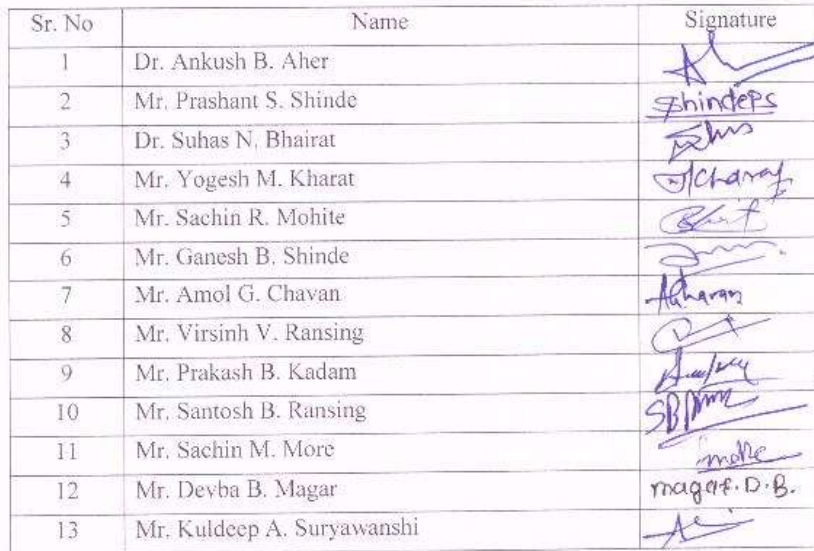 Sr. No Name Signature
1 Dr. Ankush B. Aher
2 Mr. Prashant S. Shinde Shindeps
3 Dr. Suhas N. Bhairat
4 Mr. Yogesh M. Kharat
5 Mr. Sachin R. Mohite
6 Mr. Ganesh B. Shinde
7 Mr. Amol G. Chavan
8 Mr. Virsinh V. Ransing
9 Mr. Prakash B. Kadam
10 Mr. Santosh B. Ransing
11 Mr. Sachin M. More more
12 Mr. Devba B. Magar magar.D.B.
13 Mr. Kuldeep A. Suryawanshi